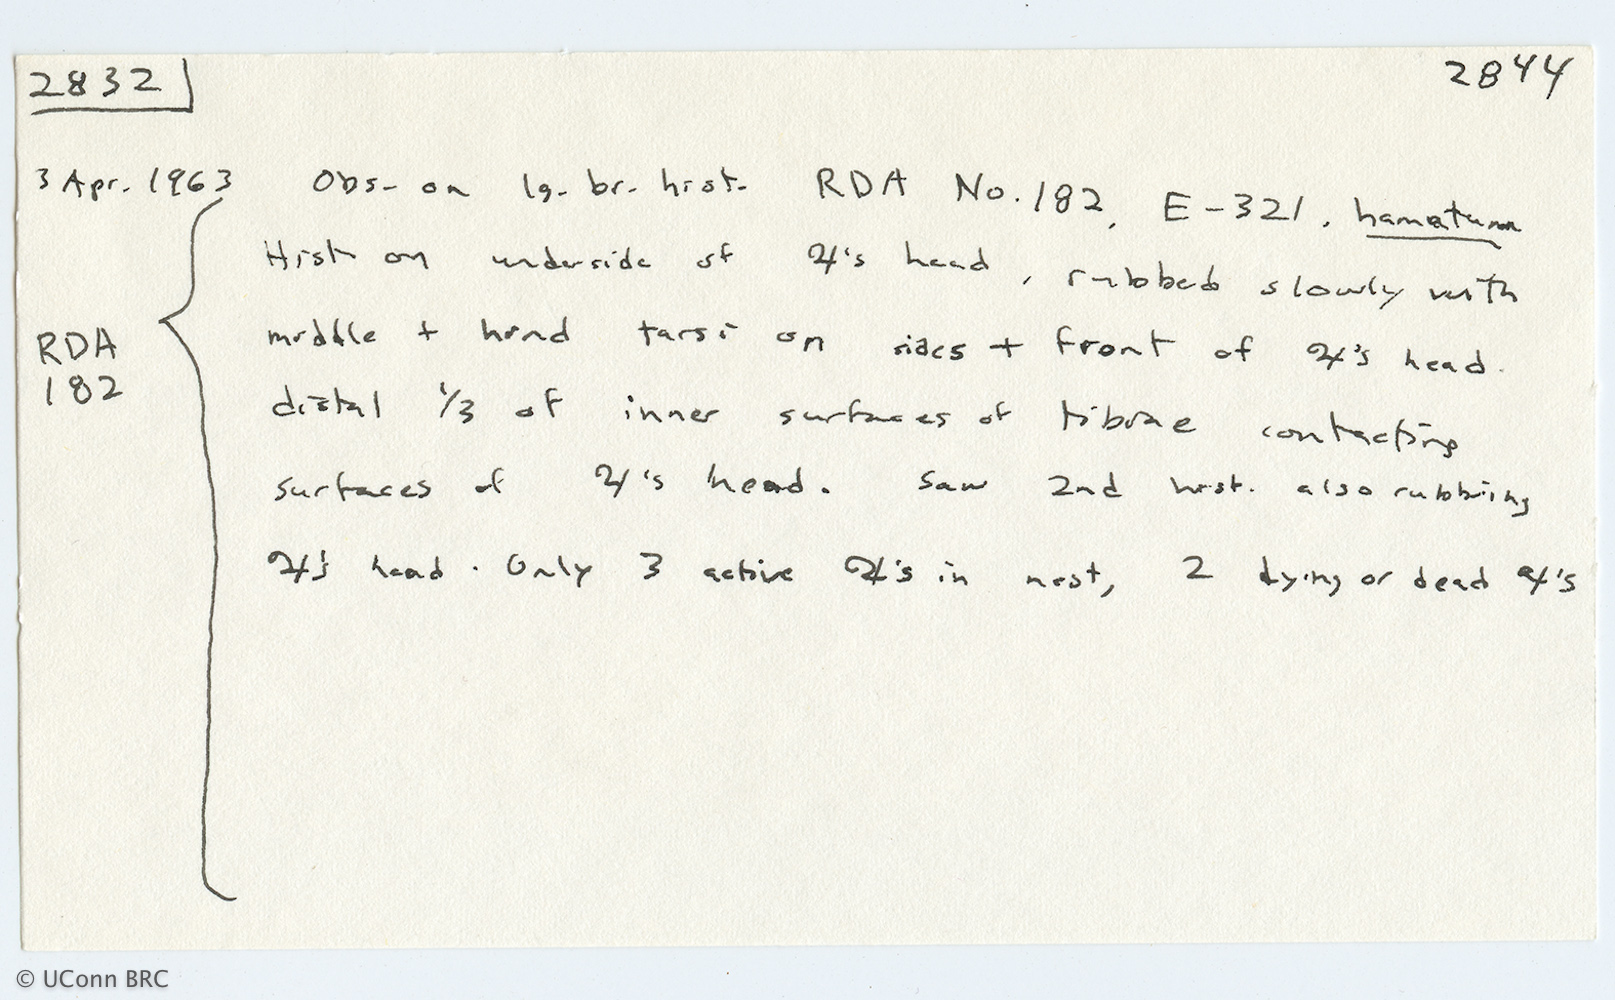 2832
2844
3 Apr. 1963 Obs- on lg. br. hist. RDA No. 182, E-321, hamatum
Hist on underside of ☿'s head, rubbed slowly with
RDA
182
middle + hind tarsi on sides + front of ☿'s head.
distal 1/3 of inner surfaces of tibiae contacting
surfaces of ☿'s head. Saw 2nd hist. also rubbing
☿'s head. Only 3 active ☿'s in nest, 2 dying or dead ☿'s
© UConn BRC